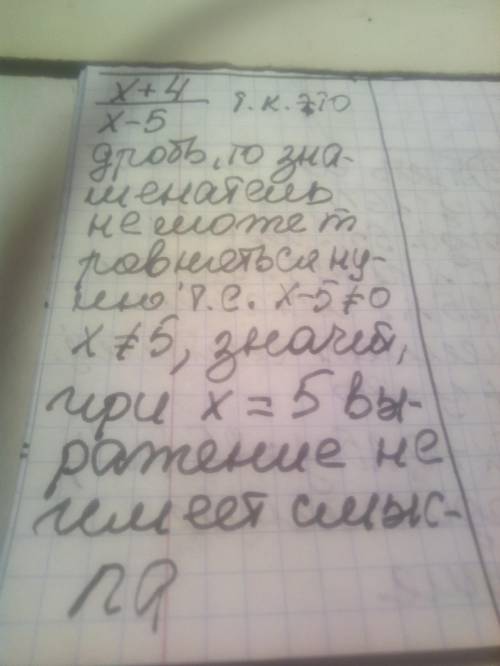 x+4 т.к. это
x-5
дробь, то зна-
менатель
не может
ровняться ну-
лю т.е. x-5≠0
x≠5, значит,
при x=5 вы-
ражение не
имеет смыс-
ла